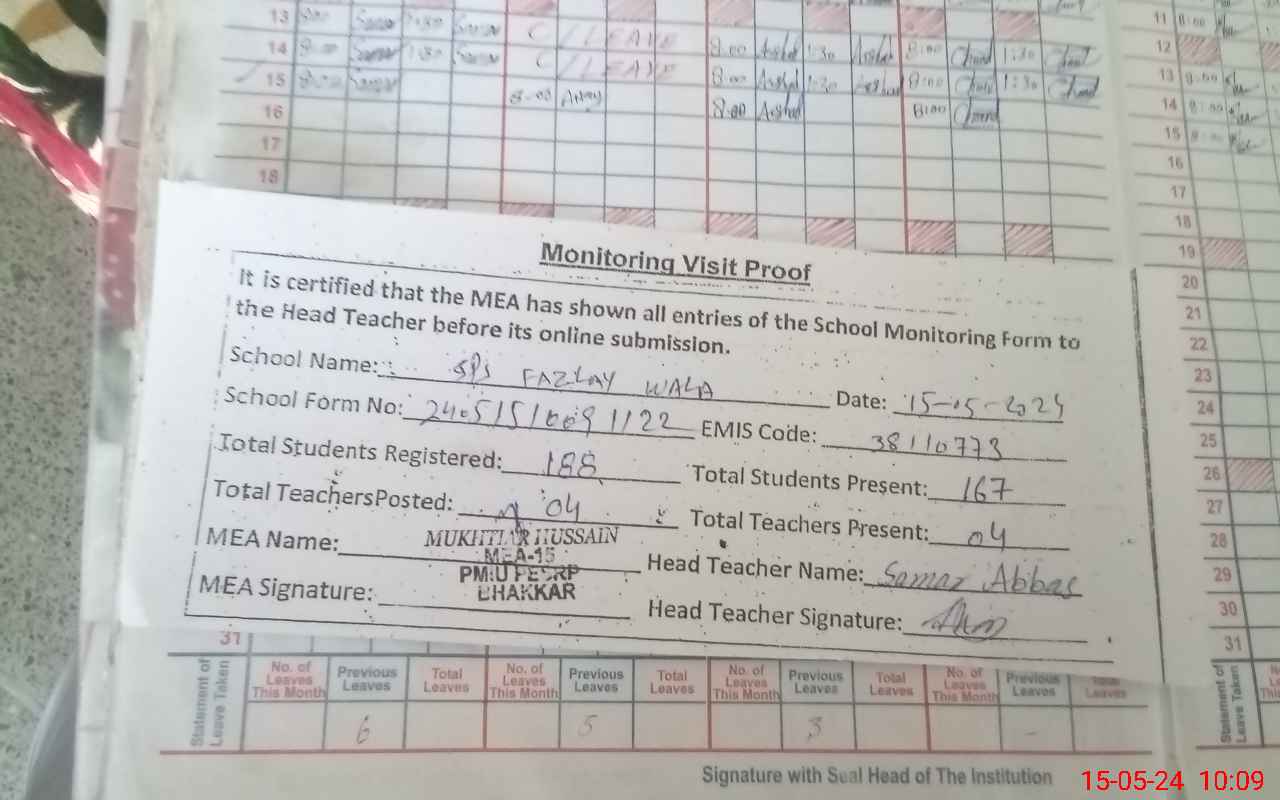 13 8:00 1:30 C/LEAVE
14 8:00 1:30 C/LEAVE 8.00 Arshad 1:30 Arshad 8:00 1:30
15 8:00 8.00 8:00 Arshad 1:30 Arshad 8:00 1:30
16 8.00 Arshad 8:00
17
18
11 8:00
12
13 8:00
14 8:00
15 8:00
16
17
18
19
20
21
22
23
24
25
26
27
28
29
30
31
Monitoring Visit Proof
It is certified that the MEA has shown all entries of the School Monitoring Form to
the Head Teacher before its online submission.
School Name: GPS FAZLAY WALA Date: 15-05-2024
School Form No: 24051516691122 EMIS Code: 38110773
Total Students Registered: 188 Total Students Present: 167
Total TeachersPosted: 04 Total Teachers Present: 04
MEA Name: MUKHTIAR HUSSAIN Head Teacher Name: Samar Abbas
MEA-15
PMIU PESRP
BHAKKAR
MEA Signature: Head Teacher Signature:
31
Statement of
Leave Taken
No. of Leaves This Month Previous Leaves Total Leaves No. of Leaves This Month Previous Leaves Total Leaves No. of Leaves This Month Previous Leaves Total Leaves No. of Leaves This Month Previous Leaves Total Leaves
6 5 3 -
Statement of
Leave Taken
Signature with Seal Head of The Institution
15-05-24 10:09